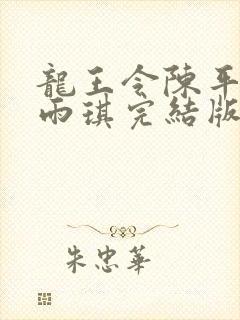 龍王令陳平
雨琪完結版
朱忠華